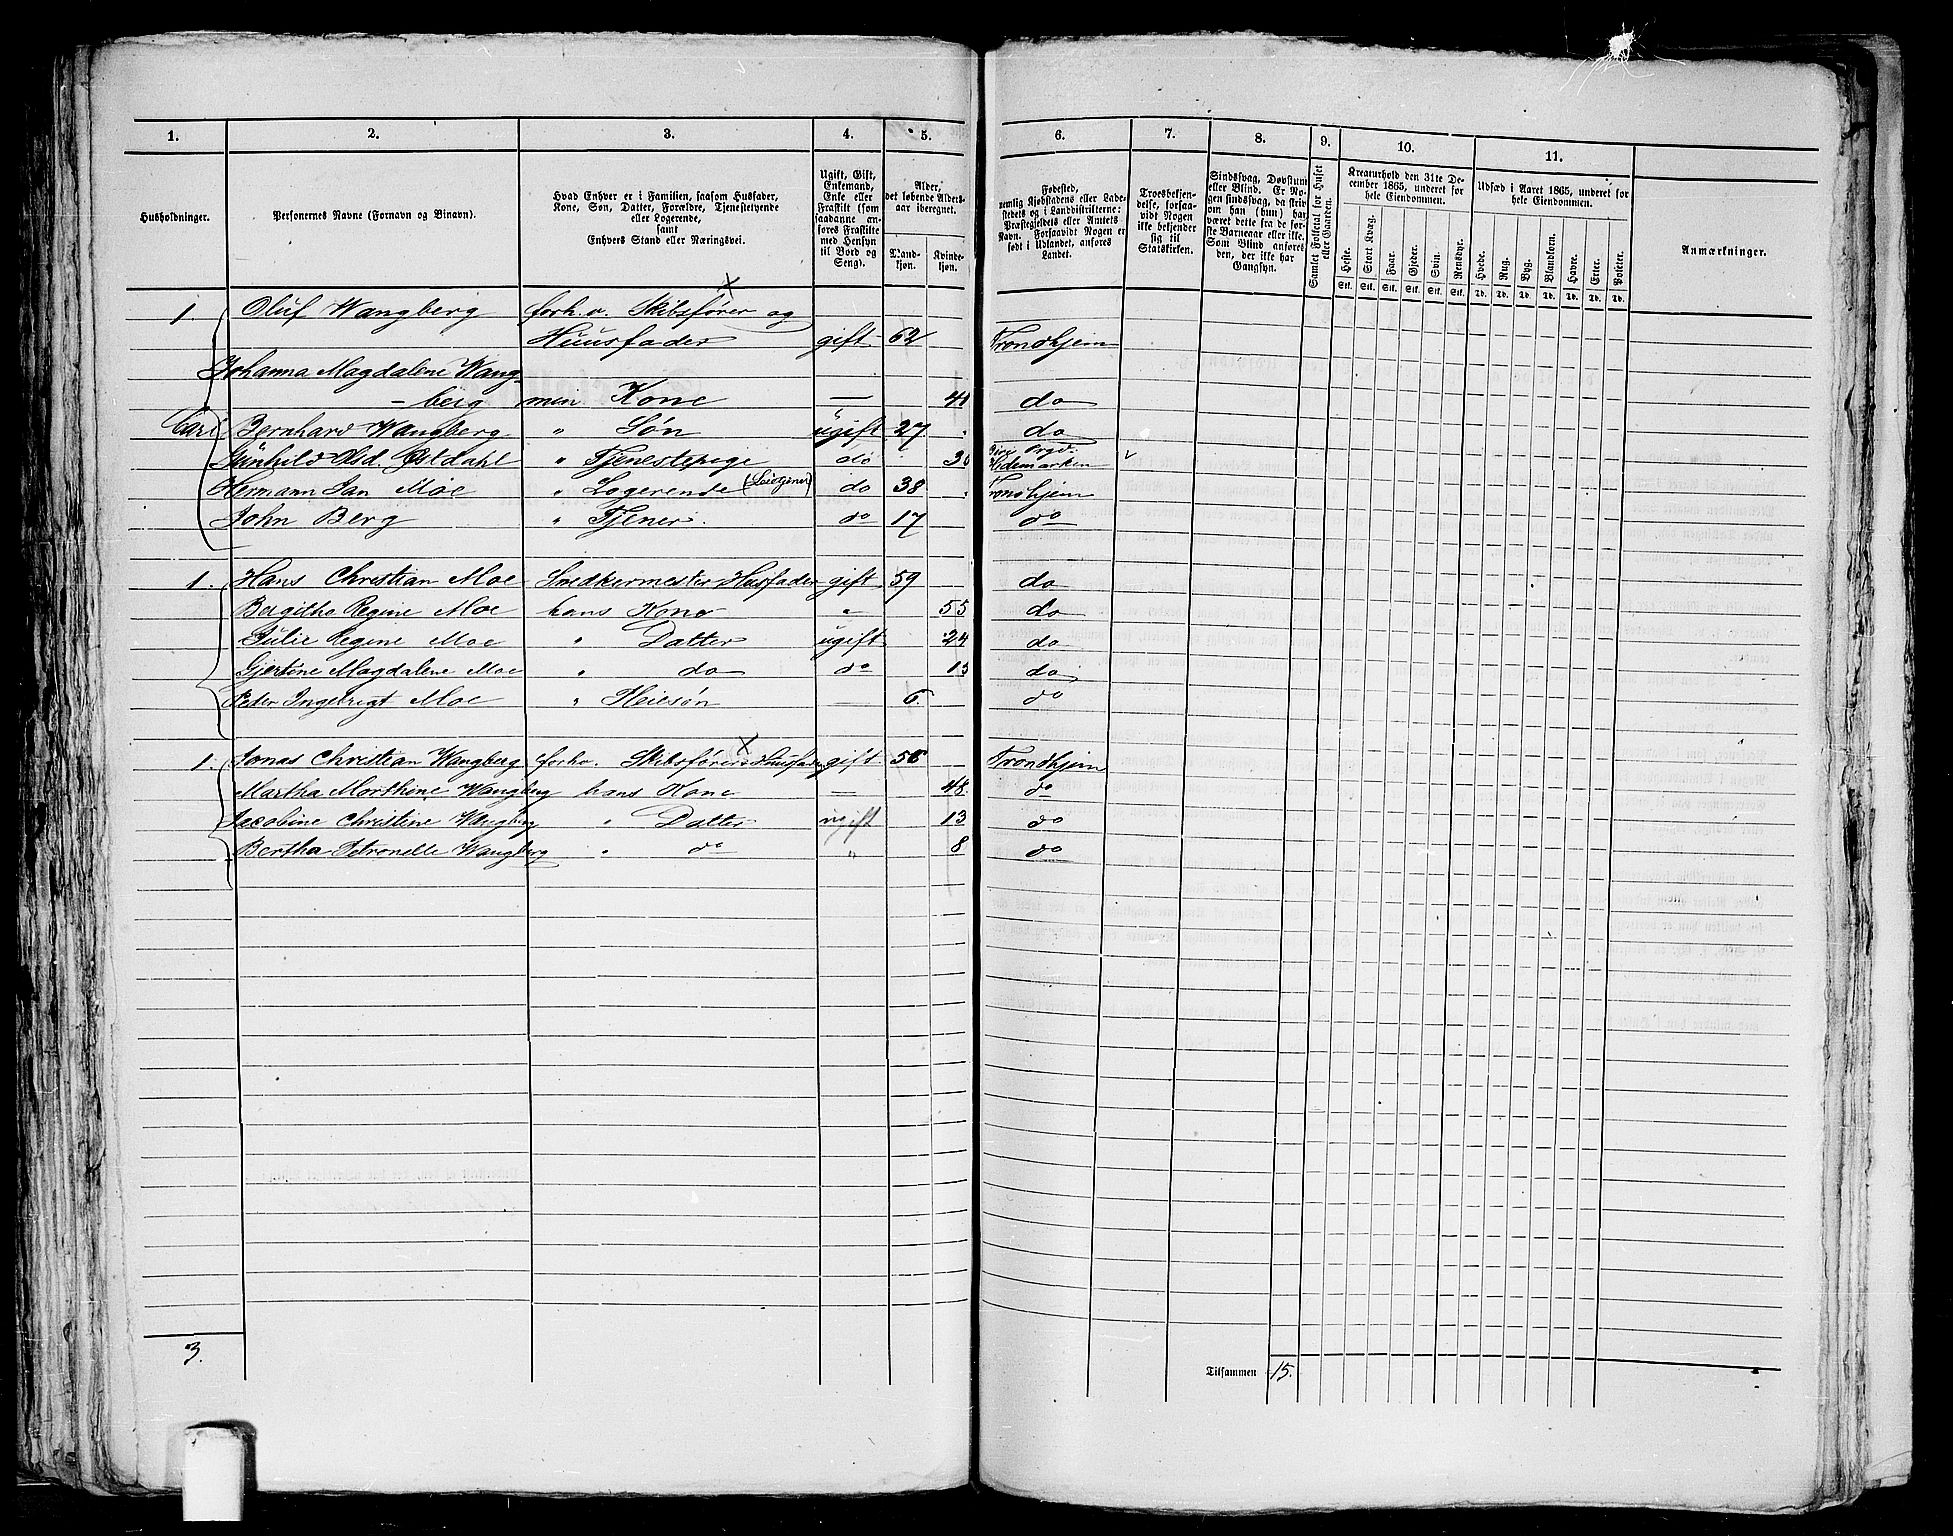 1. 2. 3. 4. 5. 6. 7. 8. 9. 10. 11.
Husholdninger.
Personernes Navne (Fornavn og Binavn).
Hvad Enhver er i Familien, saasom Husfader,
Kone, Søn, Datter, Forældre, Tjenestetyende
eller Logerende,
samt
Enhvers Stand eller Næringsvei.
Ugift, Gift,
Enkemand,
Enke eller
Fraskilt (som
saadanne an-
føres Fraskilte
med Hensyn
til Bord og
Seng).
Alder,
det løbende Alders-
aar iberegnet.
Mand-
kjøn.
Kvinde-
kjøn.
Fødested,
nemlig Kjøbstadens eller Lade-
stedets og i Landdistrikterne:
Præstegjeldets eller Amtets
Navn. Forsaavidt Nogen er
født i Udlandet, anføres
Landet.
Troesbekjen-
delse, forsaa-
vidt Nogen
ikke bekjender
sig til
Statskirken.
Sindssvag, Døvstum
eller Blind. Er No-
gen sindssvag, da skriv
om han (hun) har
været dette fra de før-
ste Barneaar eller ikke.
Som Blind anføres
den, der ikke har
Gangsyn.
Samlet Folketal for Huset
eller Gaarden.
Kreaturhold den 31te De-
cember 1865, underet for
hele Eiendommen.
Heste. Stort Kvæg. Faar. Gjeder. Svin. Rensdyr.
Stk. Stk. Stk. Stk. Stk. Stk.
Udsæd i Aaret 1865, underet for
hele Eiendommen.
Hvede. Rug. Byg. Blandkorn. Havre. Erter. Poteter.
Td. Td. Td. Td. Td. Td. Td.
Anmærkninger.
1. Oluf Wangberg forh.v. Skibsfører og
Huusfader gift 62 Trondhjem
Johanna Magdalene Wang-
-berg Kone — 41 do
Carl Bernhard Wangberg " Søn ugift 27 do
Gunhild Olsd. Østdahl " Tjenestepige do 30 Hedemarken
Hermann Jan Moe " Logerende do 38 Trondhjem
John Berg " Tjener. do 17 do
1. Hans Christian Moe Snedkermester Husfader gift 59 do
Bergitha Regine Moe hans Kone " 55 do
Julie Regine Moe " Datter ugift 24 do
Gjertine Magdalene Moe " do do 15 do
Peder Ingebrigt Moe " Pleiesøn — 6 do
1. Jonas Christian Wangberg forhv. Skibsfører Huusfader gift 56 Trondhjem
Martha Morthine Wangberg hans Kone — 48 do
Jacobine Christine Wangberg " Datter ugift 13 do
Bertha Petronelle Wangberg " do " 8 do
3. Tilsammen 15.